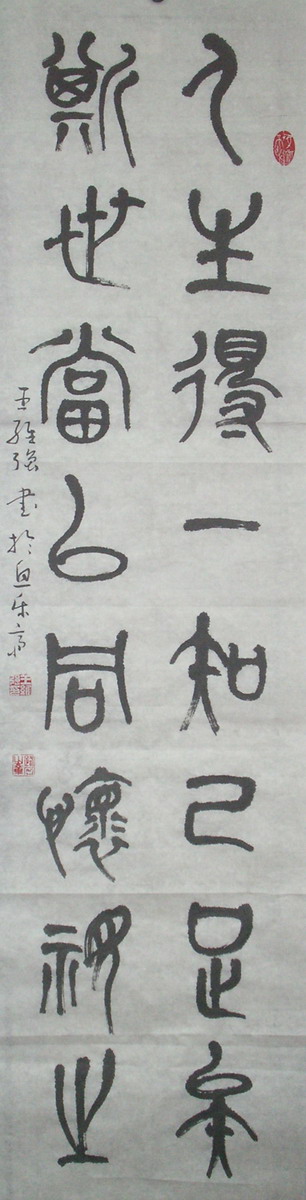 人生得一知己足矣
斯世當以同懷視之
王維强書於